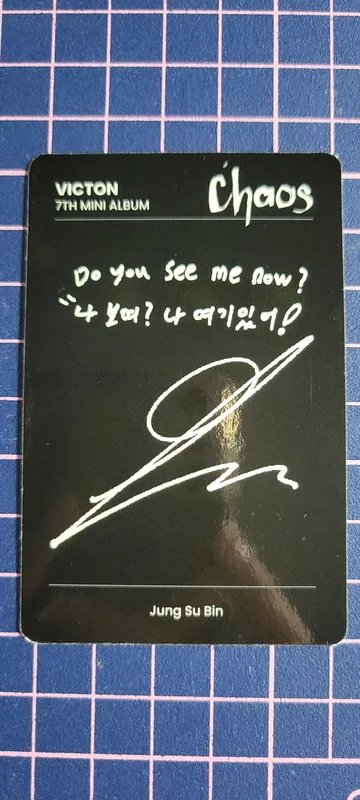 VICTON
7TH MINI ALBUM
Chaos
Do you see me now?
"나 보여? 나 여기있어!
Jung Su Bin